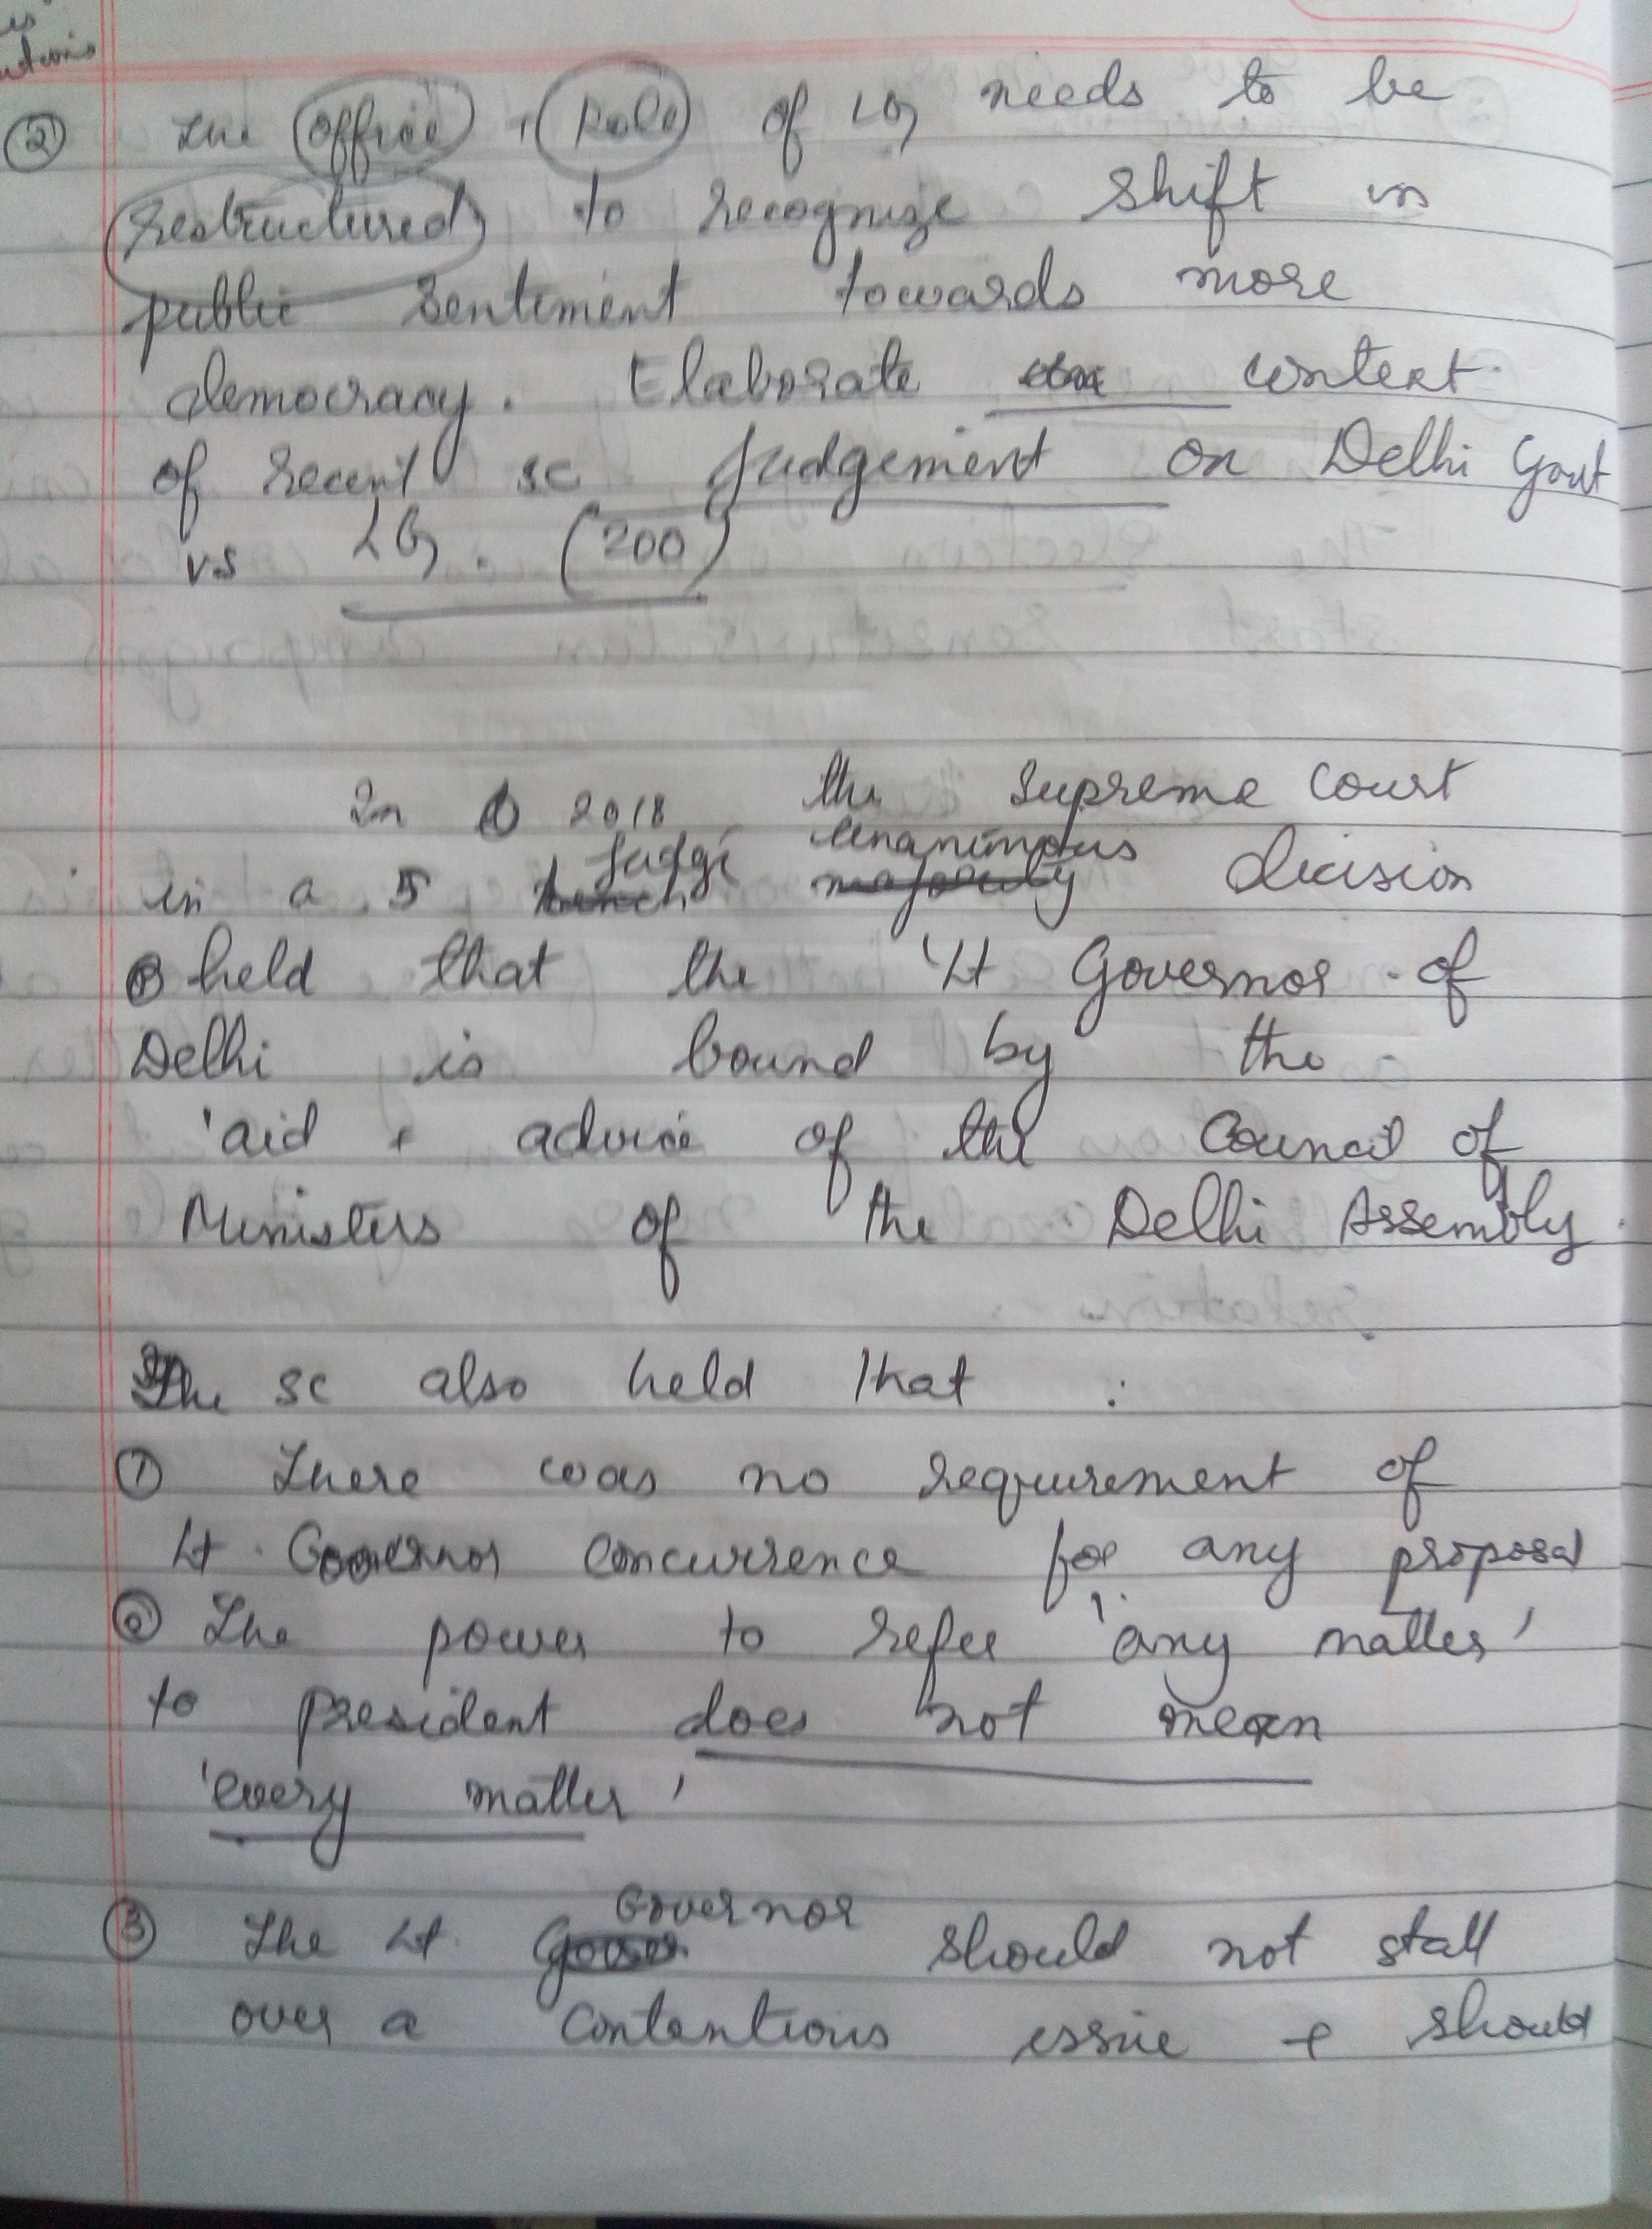 ② The office , Role of LG needs to be
restructured to recognize shift in
public sentiment towards more
democracy. Elaborate context
of recent SC judgement on Delhi Govt
vs LG. (200)
In 2018 the Supreme Court
in a 5 Judge unanimous decision
held that the 'Lt Governor of
Delhi is bound by the
'aid + advice of the Council of
Ministers of the Delhi Assembly.
The SC also held that :
① There was no requirement of
Lt. Governor concurrence for any proposal
② The power to refer 'any matter'
to president does not mean
'every matter'
③ The Lt. Governor should not stall
over a contentious issue + should